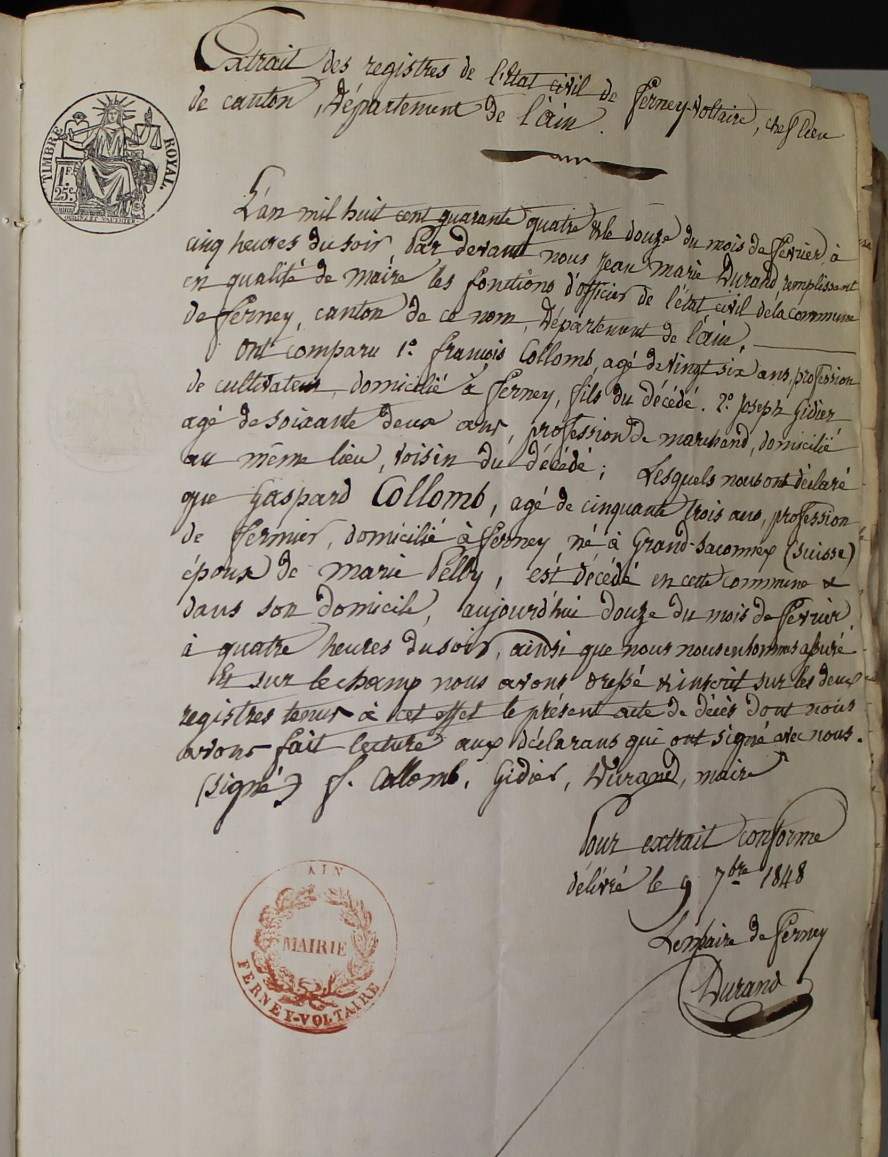 Extrait des registres de l'état civil de Ferney-Voltaire, chef lieu
de canton, Département de l'ain.
TIMBRE ROYAL
1F.
25c.
L'an mil huit cent quarante quatre & le douze du mois de février à
cinq heures du soir, Par devant nous Jean Marie Durand remplissent
en qualité de maire les fonctions d'officier de l'état civil de la commune
de Ferney, canton de ce nom, Département de l'ain.
Ont comparu 1.° françois Collomb, agé de vingt six ans, profession
de cultivateur, domicilié à Ferney, fils du décédé. 2.° Joseph Gidier
agé de soixante deux ans, profession de marchand, domicilié
au même lieu, voisin du décédé; Lesquels nous ont déclaré
que Gaspard Collomb, agé de cinquante trois ans, profession
de fermier, domicilié à Ferney né à Grand-Saconnex (Suisse)
époux de marie Pelly, est décédé en cette commune &
dans son domicile, aujourd'hui douze du mois de février
à quatre heures du soir, ainsi que nous nous en sommes assuré.
Et sur le champ nous avons dressé & inscrit sur les deux
registres tenus à cet effet le présent acte de décès dont nous
avons fait lecture aux déclarans qui ont signé avec nous.
(signé) f. Collomb, Gidier, Durand, maire
Pour extrait conforme
délivré le 9 7bre 1848
Le maire de Ferney
Durand
AIN
MAIRIE
FERNEY-VOLTAIRE